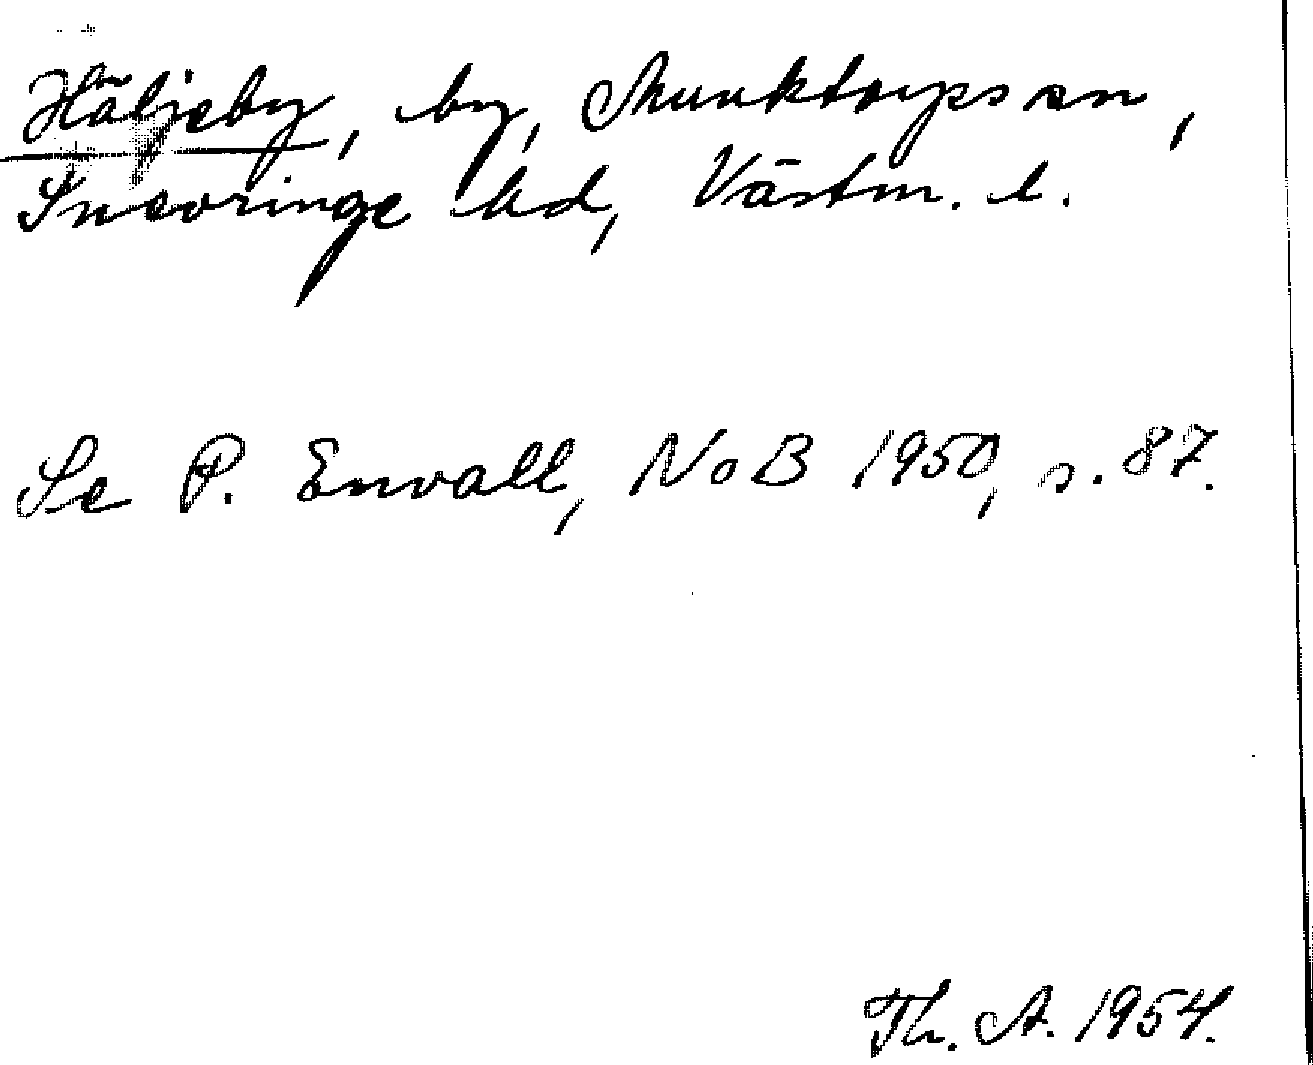 Häljeby, by, Munktorps sn,
Snevringe hd, Västm. l.
Se P. Envall, NoB 1950, s. 87.
Th. A. 1954.